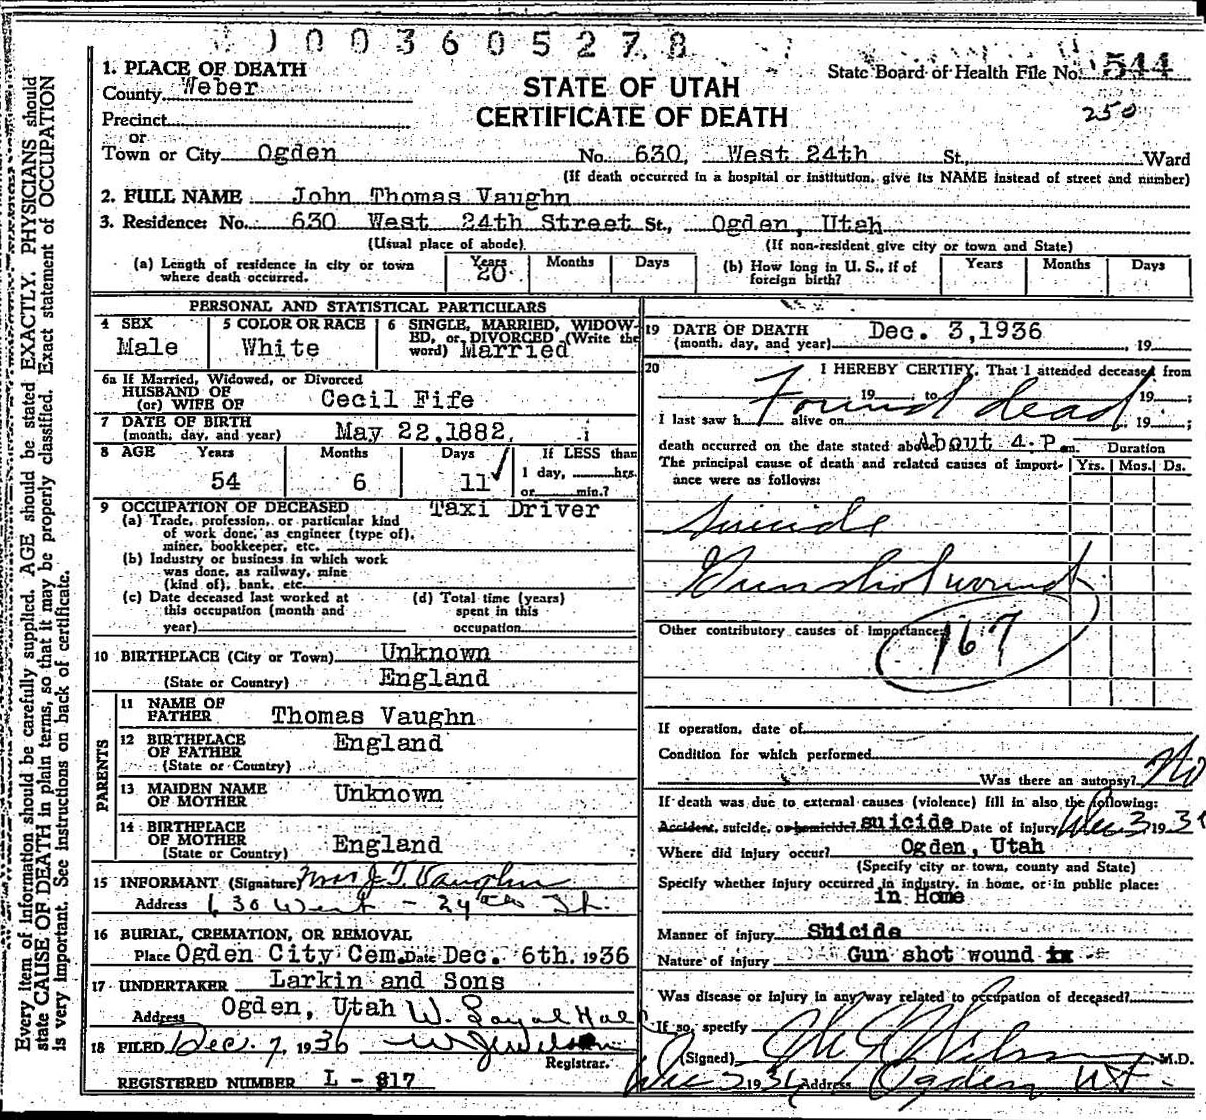 1003605278
1. PLACE OF DEATH
County Weber
Precinct
or
Town or City Ogden No. 630, West 24th St., Ward
(If death occurred in a hospital or institution, give its NAME instead of street and number)
STATE OF UTAH
CERTIFICATE OF DEATH
State Board of Health File No. 544
250
2. FULL NAME John Thomas Vaughn
3. Residence: No. 630 West 24th Street St., Ogden, Utah
(Usual place of abode) (If non-resident give city or town and State)
(a) Length of residence in city or town where death occurred. Years 20 Months Days
(b) How long in U. S., if of foreign birth? Years Months Days
PERSONAL AND STATISTICAL PARTICULARS
4 SEX Male
5 COLOR OR RACE White
6 SINGLE, MARRIED, WIDOWED, or DIVORCED (Write the word) Married
6a If Married, Widowed, or Divorced
HUSBAND OF
(or) WIFE OF Cecil Fife
7 DATE OF BIRTH
(month, day, and year) May 22,1882.
8 AGE Years 54 Months 6 Days 11 If LESS than
1 day, hrs.
or min.?
9 OCCUPATION OF DECEASED Taxi Driver
(a) Trade, profession, or particular kind
of work done, as engineer (type of),
miner, bookkeeper, etc.
(b) Industry or business in which work
was done, as railway, mine
(kind of), bank, etc.
(c) Date deceased last worked at
this occupation (month and
year)
(d) Total time (years)
spent in this
occupation
10 BIRTHPLACE (City or Town) Unknown
(State or Country) England
PARENTS
11 NAME OF
FATHER Thomas Vaughn
12 BIRTHPLACE
OF FATHER England
(State or Country)
13 MAIDEN NAME
OF MOTHER Unknown
14 BIRTHPLACE
OF MOTHER
(State or Country) England
15 INFORMANT (Signature) Mrs J. T. Vaughn
Address 630 West - 24th St.
16 BURIAL, CREMATION, OR REMOVAL
Place Ogden City Cem. Date Dec. 6th. 1936
17 UNDERTAKER Larkin and Sons
Address Ogden, Utah W.
18 FILED Dec. 7, 1936
Registrar.
REGISTERED NUMBER L - 817
19 DATE OF DEATH
(month, day, and year) Dec. 3,1936 , 19
20 I HEREBY CERTIFY, That I attended deceased from
19 to 19 ;
Found dead
I last saw h alive on , 19 ;
death occurred on the date stated above About 4.P m.
The principal cause of death and related causes of importance were as follows:
Duration
Yrs. Mos. Ds.
Suicide
Gunshot wound
Other contributory causes of importance:
167
If operation, date of
Condition for which performed
Was there an autopsy? No
If death was due to external causes (violence) fill in also the following:
Accident, suicide, or homicide? suicide Date of injury Dec 3 1936
Where did injury occur? Ogden, Utah
(Specify city or town, county and State)
Specify whether injury occurred in industry, in home, or in public place:
in Home
Manner of injury Suicide
Nature of injury Gun shot wound
Was disease or injury in any way related to occupation of deceased?
If so, specify
(Signed) M.D.
1936 Address Ogden Ut.
Every item of information should be carefully supplied. AGE should be stated EXACTLY. PHYSICIANS should
state CAUSE OF DEATH in plain terms, so that it may be properly classified. Exact statement of OCCUPATION
is very important. See instructions on back of certificate.